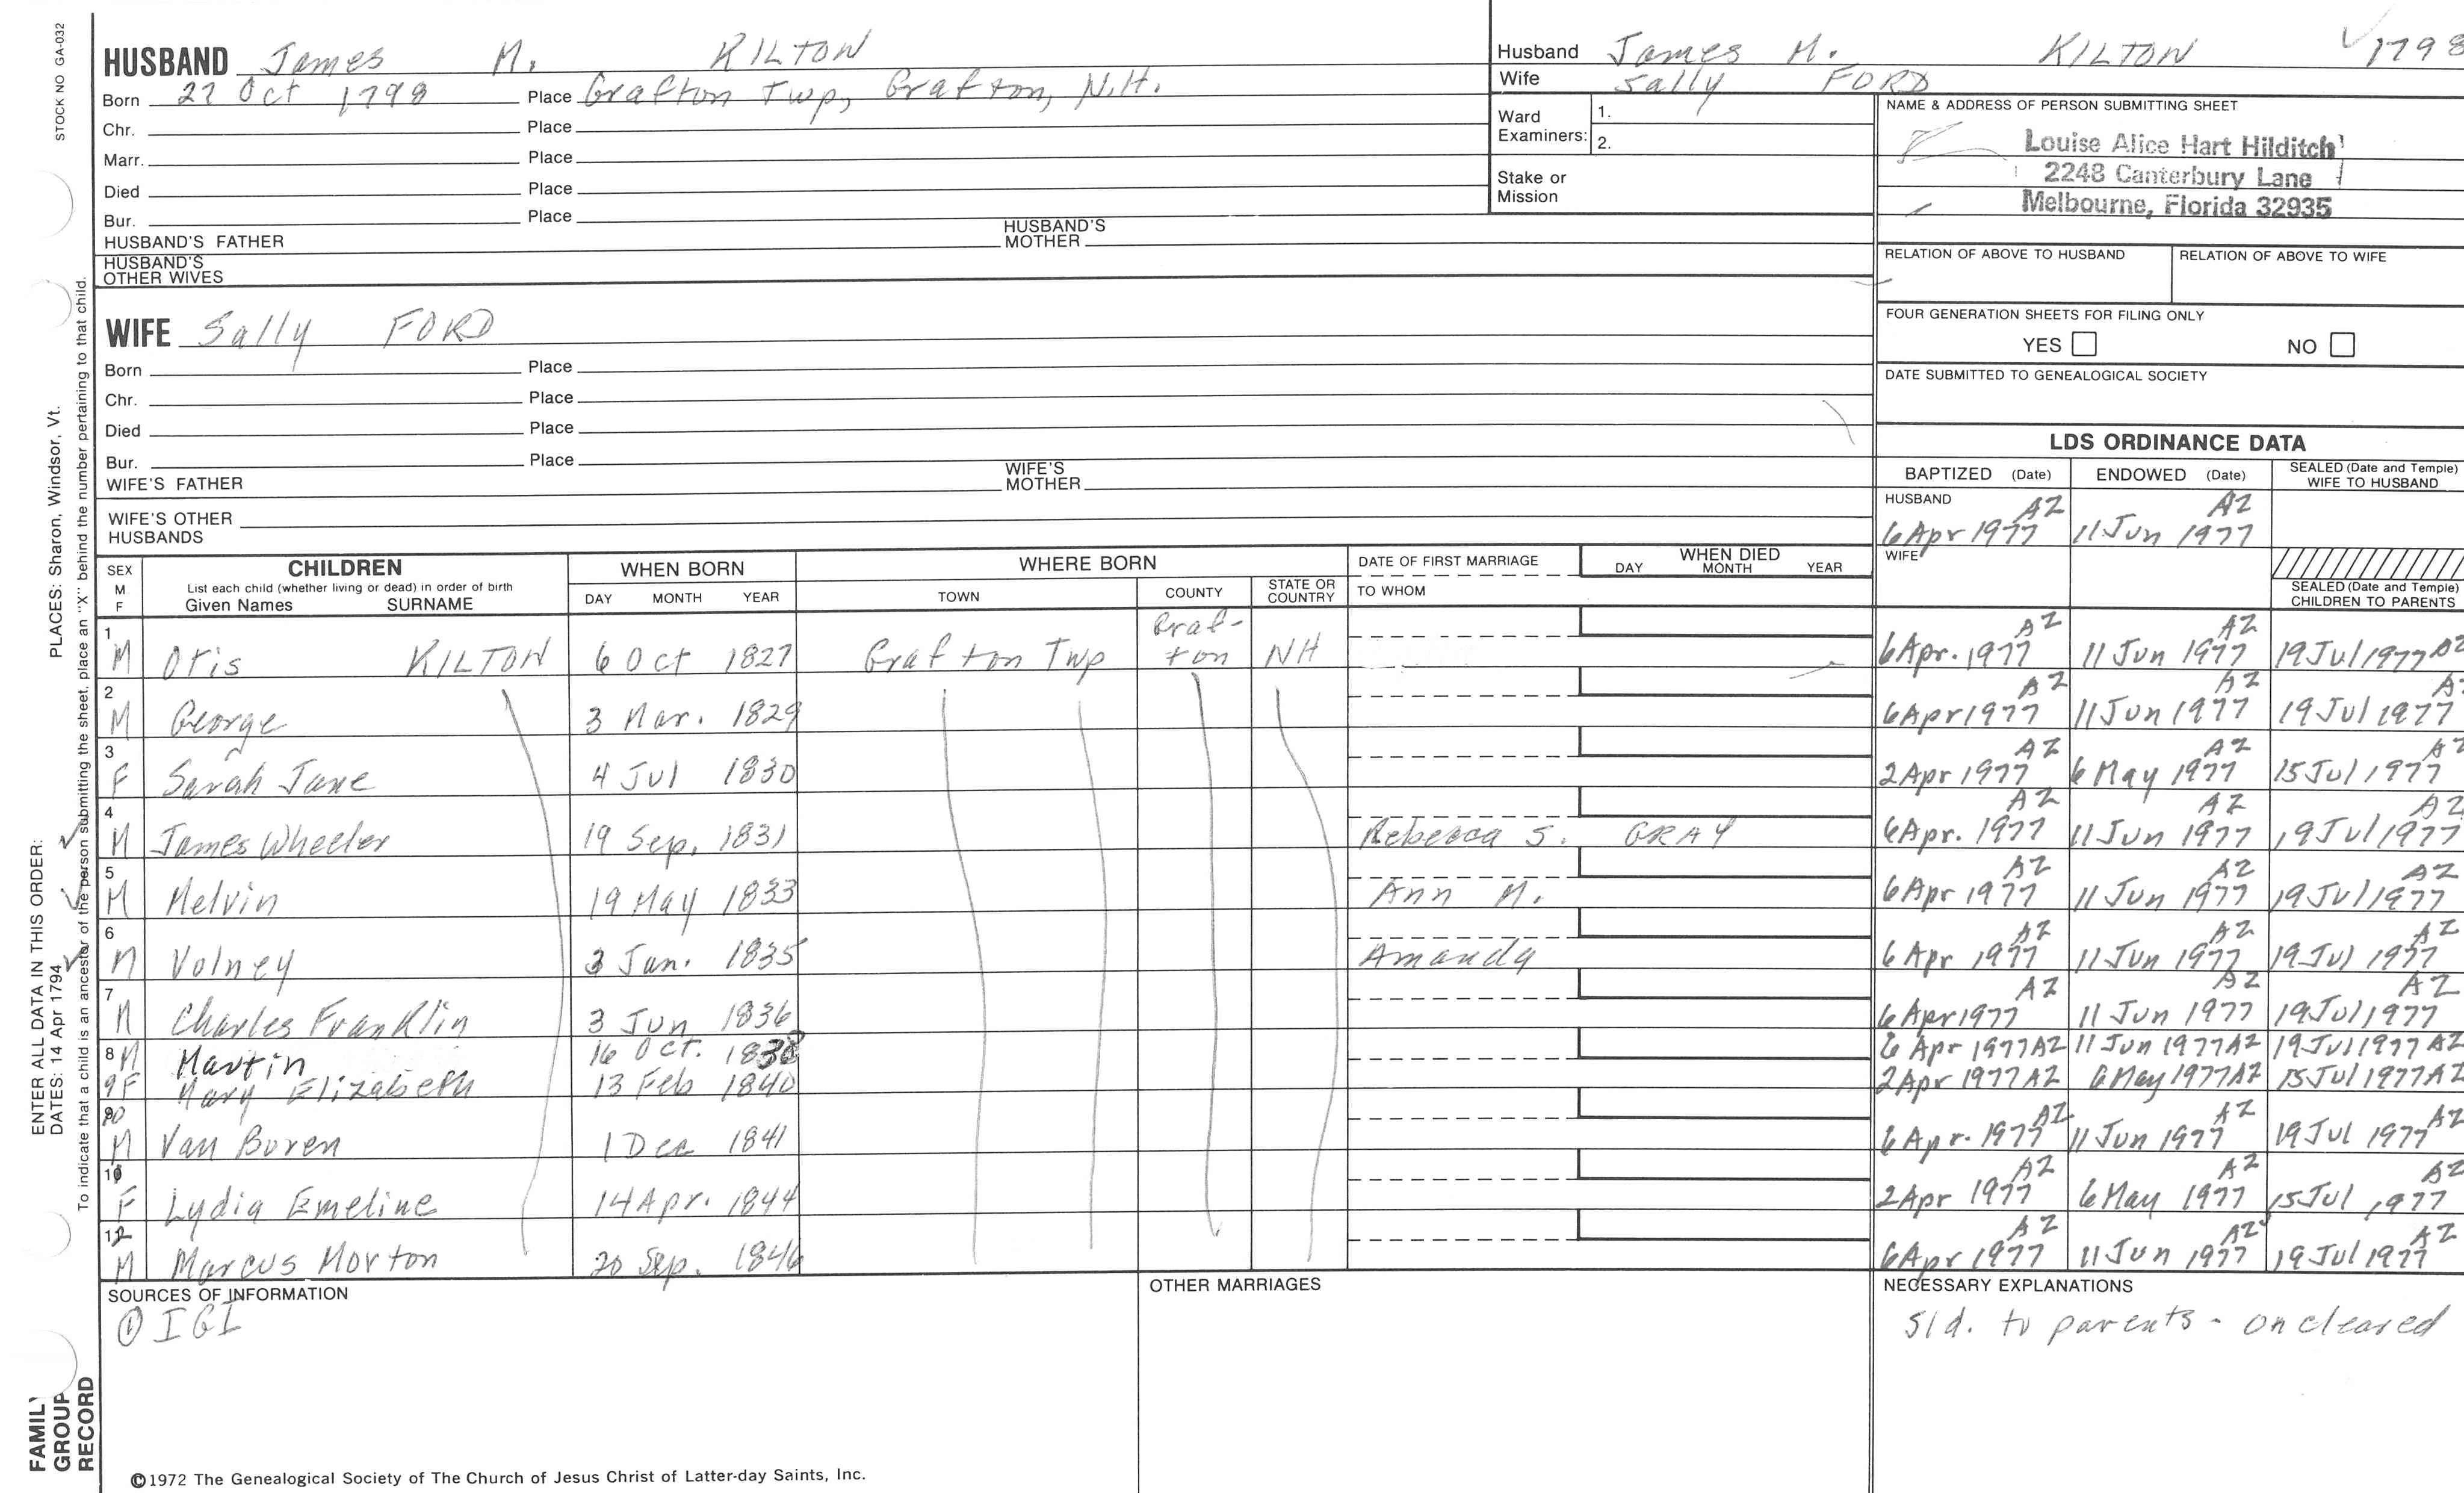 STOCK NO GA-032
HUSBAND James M. KILTON
Born 27 Oct 1798 Place Grafton Twp, Grafton, N.H.
Chr. Place
Marr. Place
Died Place
Bur. Place
HUSBAND'S FATHER HUSBAND'S MOTHER
HUSBAND'S OTHER WIVES
Husband James M. KILTON 1798
Wife Sally FORD
Ward Examiners: 1. 2.
Stake or Mission
NAME & ADDRESS OF PERSON SUBMITTING SHEET
Louise Alice Hart Hilditch
2248 Canterbury Lane
Melbourne, Florida 32935
RELATION OF ABOVE TO HUSBAND RELATION OF ABOVE TO WIFE
FOUR GENERATION SHEETS FOR FILING ONLY
YES NO
DATE SUBMITTED TO GENEALOGICAL SOCIETY
WIFE Sally FORD
Born Place
Chr. Place
Died Place
Bur. Place
WIFE'S FATHER WIFE'S MOTHER
WIFE'S OTHER HUSBANDS
LDS ORDINANCE DATA
BAPTIZED (Date) ENDOWED (Date) SEALED (Date and Temple) WIFE TO HUSBAND
HUSBAND 6 Apr 1977 AZ 11 Jun 1977 AZ
WIFE
SEALED (Date and Temple) CHILDREN TO PARENTS
SEX M F
CHILDREN
List each child (whether living or dead) in order of birth
Given Names SURNAME
WHEN BORN DAY MONTH YEAR
WHERE BORN TOWN COUNTY STATE OR COUNTRY
DATE OF FIRST MARRIAGE TO WHOM
WHEN DIED DAY MONTH YEAR
1 M Otis KILTON 6 Oct 1827 Grafton Twp Graf-ton NH 6 Apr. 1977 AZ 11 Jun 1977 AZ 19 Jul 1977 AZ
2 M George 3 Mar. 1829 6 Apr 1977 AZ 11 Jun 1977 AZ 19 Jul 1977 AZ
3 F Sarah Jane 4 Jul 1830 2 Apr 1977 AZ 6 May 1977 AZ 15 Jul 1977 AZ
4 M James Wheeler 19 Sep. 1831 Rebecca S. GRAY 6 Apr. 1977 AZ 11 Jun 1977 AZ 19 Jul 1977 AZ
5 M Melvin 19 May 1833 Ann M. 6 Apr 1977 AZ 11 Jun 1977 AZ 19 Jul 1977 AZ
6 M Volney 3 Jan. 1835 Amanda 6 Apr 1977 AZ 11 Jun 1977 AZ 19 Jul 1977 AZ
7 M Charles Franklin 3 Jun 1836 6 Apr 1977 AZ 11 Jun 1977 AZ 19 Jul 1977 AZ
8 M Martin 16 Oct. 1838 6 Apr 1977 AZ 11 Jun 1977 AZ 19 Jul 1977 AZ
9 F Mary Elizabeth 13 Feb 1840 2 Apr 1977 AZ 6 May 1977 AZ 15 Jul 1977 AZ
10 M Van Buren 1 Dec 1841 6 Apr. 1977 AZ 11 Jun 1977 AZ 19 Jul 1977 AZ
F Lydia Emeline 14 Apr. 1844 2 Apr 1977 AZ 6 May 1977 AZ 15 Jul 1977 AZ
12 M Marcus Morton 20 Sep. 1846 6 Apr 1977 AZ 11 Jun 1977 AZ 19 Jul 1977 AZ
SOURCES OF INFORMATION
① IGI
OTHER MARRIAGES
NECESSARY EXPLANATIONS
Sld. to parents - on cleared
©1972 The Genealogical Society of The Church of Jesus Christ of Latter-day Saints, Inc.
ENTER ALL DATA IN THIS ORDER:
DATES: 14 Apr 1794 PLACES: Sharon, Windsor, Vt.
To indicate that a child is an ancestor of the person submitting the sheet, place an "X" behind the number pertaining to that child.
FAMILY
GROUP
RECORD